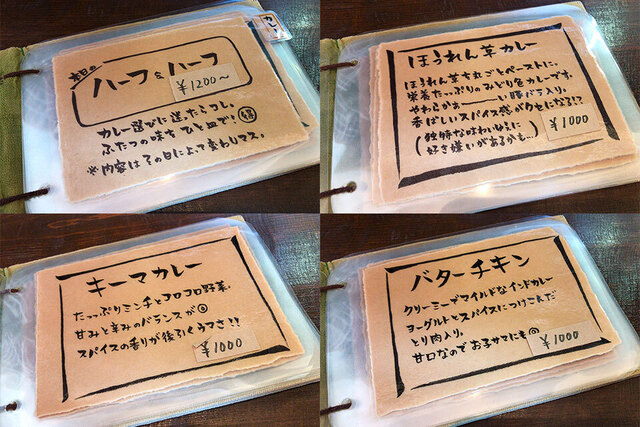 カレー
本日の
ハーフ&ハーフ
¥1200~
カレー選びに迷ったらコレ。
ふたつの味をひと皿で!
※内容はその日によって変わしマス。
ほうれん草カレー
ほうれん草まるごとペーストに、
栄養たっぷりのみどり色カレーです。
やわらかぁーーーい豚バラ入り。
香ばしいスパイス感がクセになる!?
(独特な味わいゆえに
好き嫌いがあるかも…)
¥1000
キーマカレー
たっぷりミンチとコロコロ野菜。
甘みと辛みのバランスが
スパイスの香りが後引くうまさ!!
¥1000
バターチキン
クリーミーでマイルドなインドカレー
ヨーグルトとスパイスにつけこんだ
とり肉入り。
甘口なのでお子サマにも
¥1000